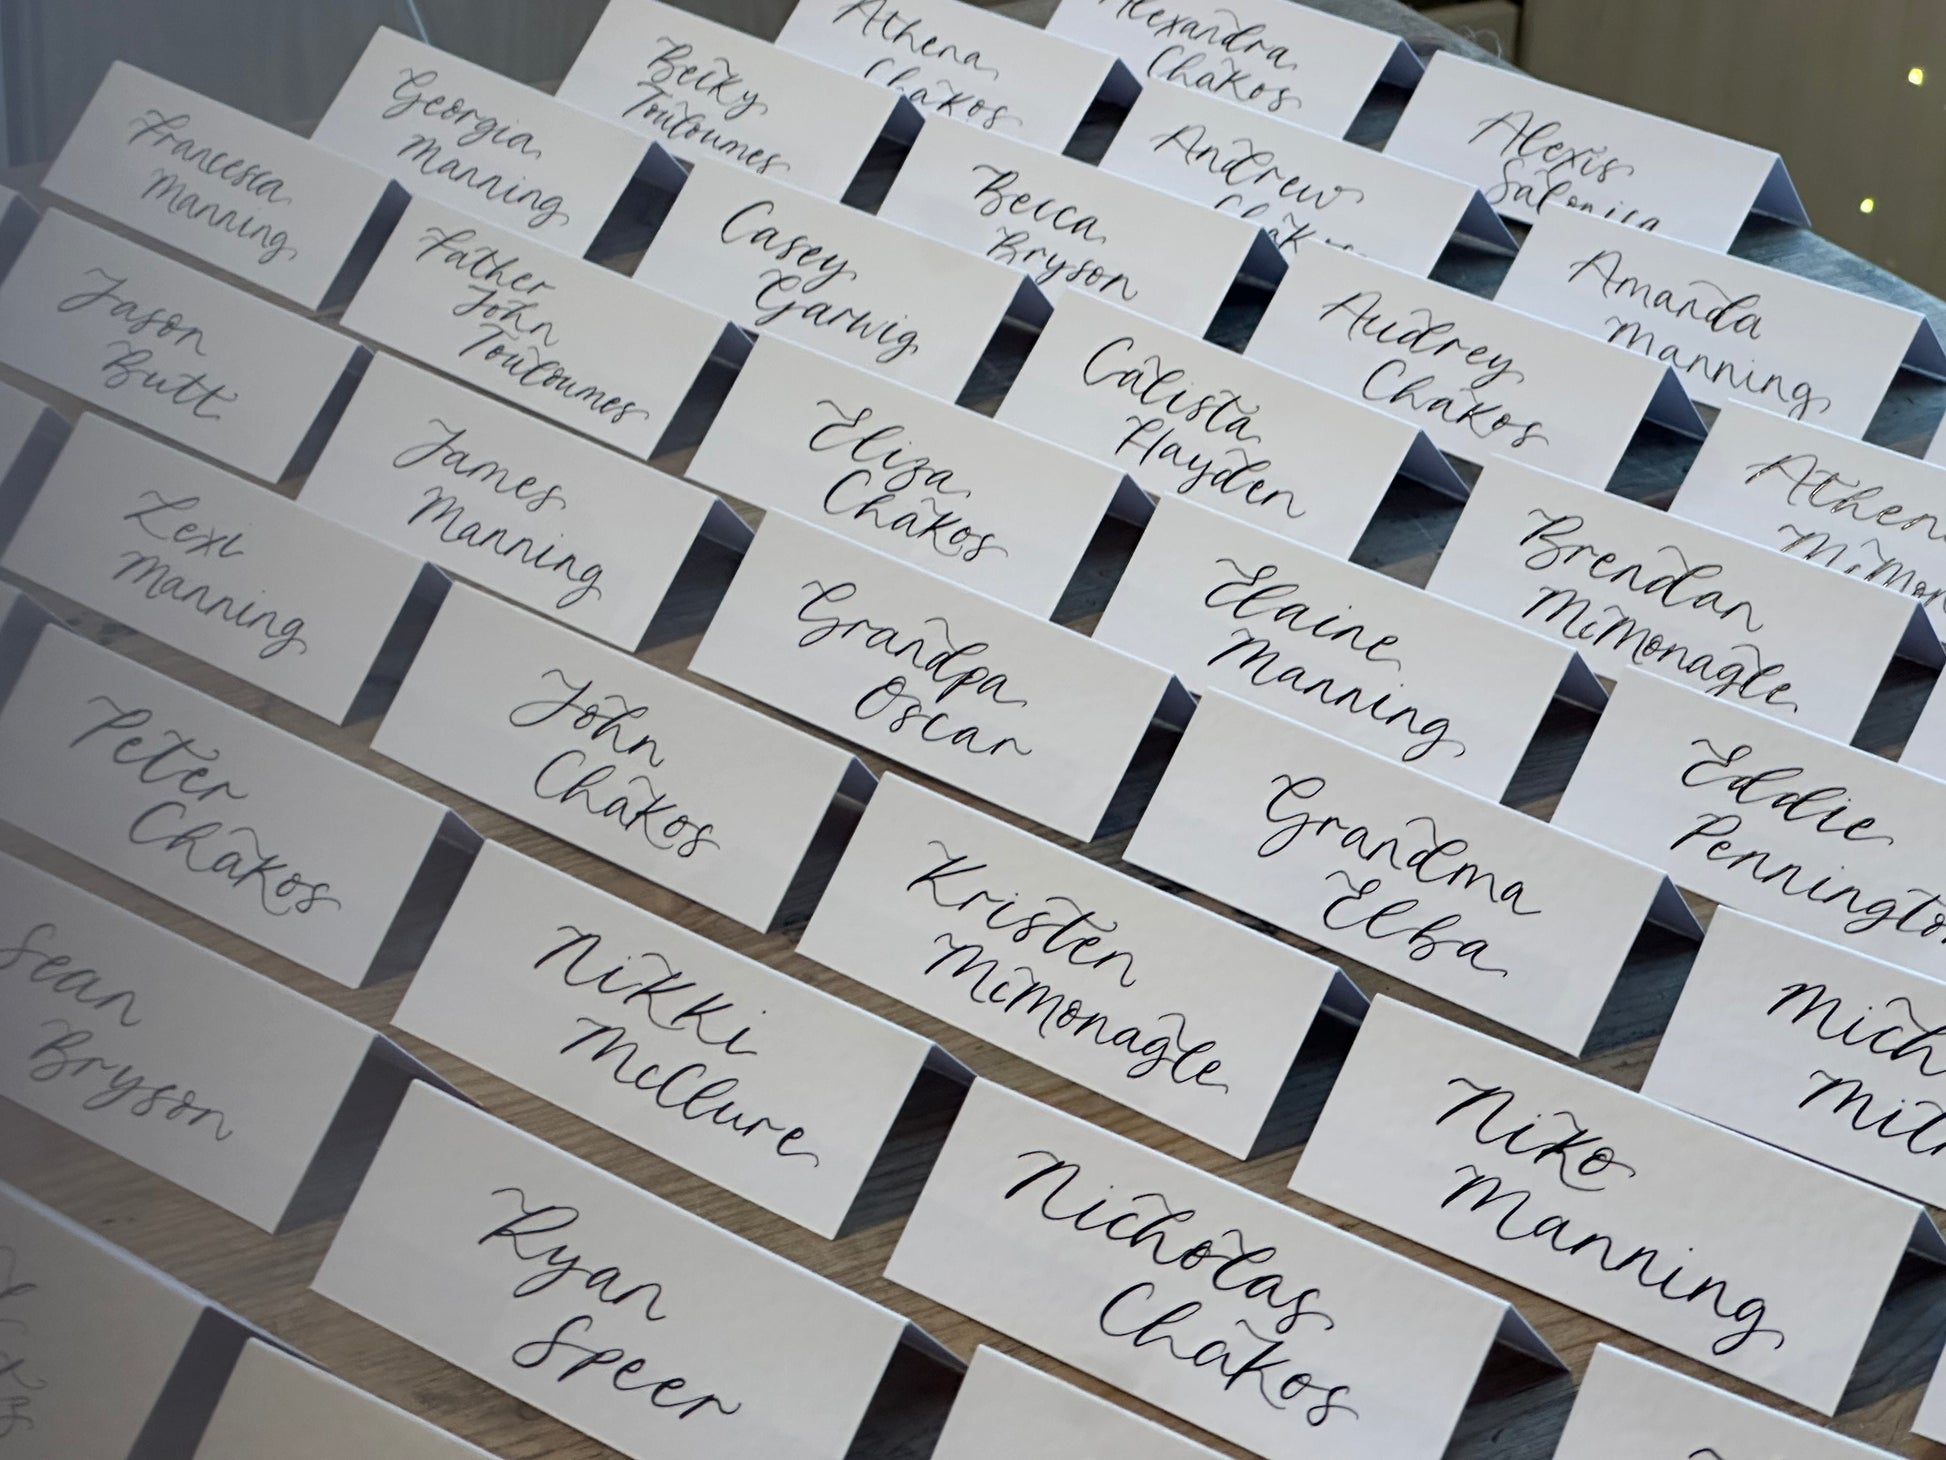 Alexandra
Chakos
Athena
Chakos
Becky
Touloumes
Georgia
Manning
Francesca
Manning
Alexis
Salonica
Andrew
Chak
Becca
Bryson
Casey
Garwig
Father
John
Touloumes
Jason
Butt
Amanda
Manning
Audrey
Chakos
Calista
Hayden
Eliza
Chakos
James
Manning
Lexi
Manning
Athen
McMon
Brendan
McMonagle
Elaine
Manning
Grandpa
Oscar
John
Chakos
Peter
Chakos
Eddie
Pennington
Grandma
Elba
Kristen
McMonagle
Nikki
McClure
Sean
Bryson
Mich
Mit
Niko
Manning
Nicholas
Chakos
Ryan
Speer